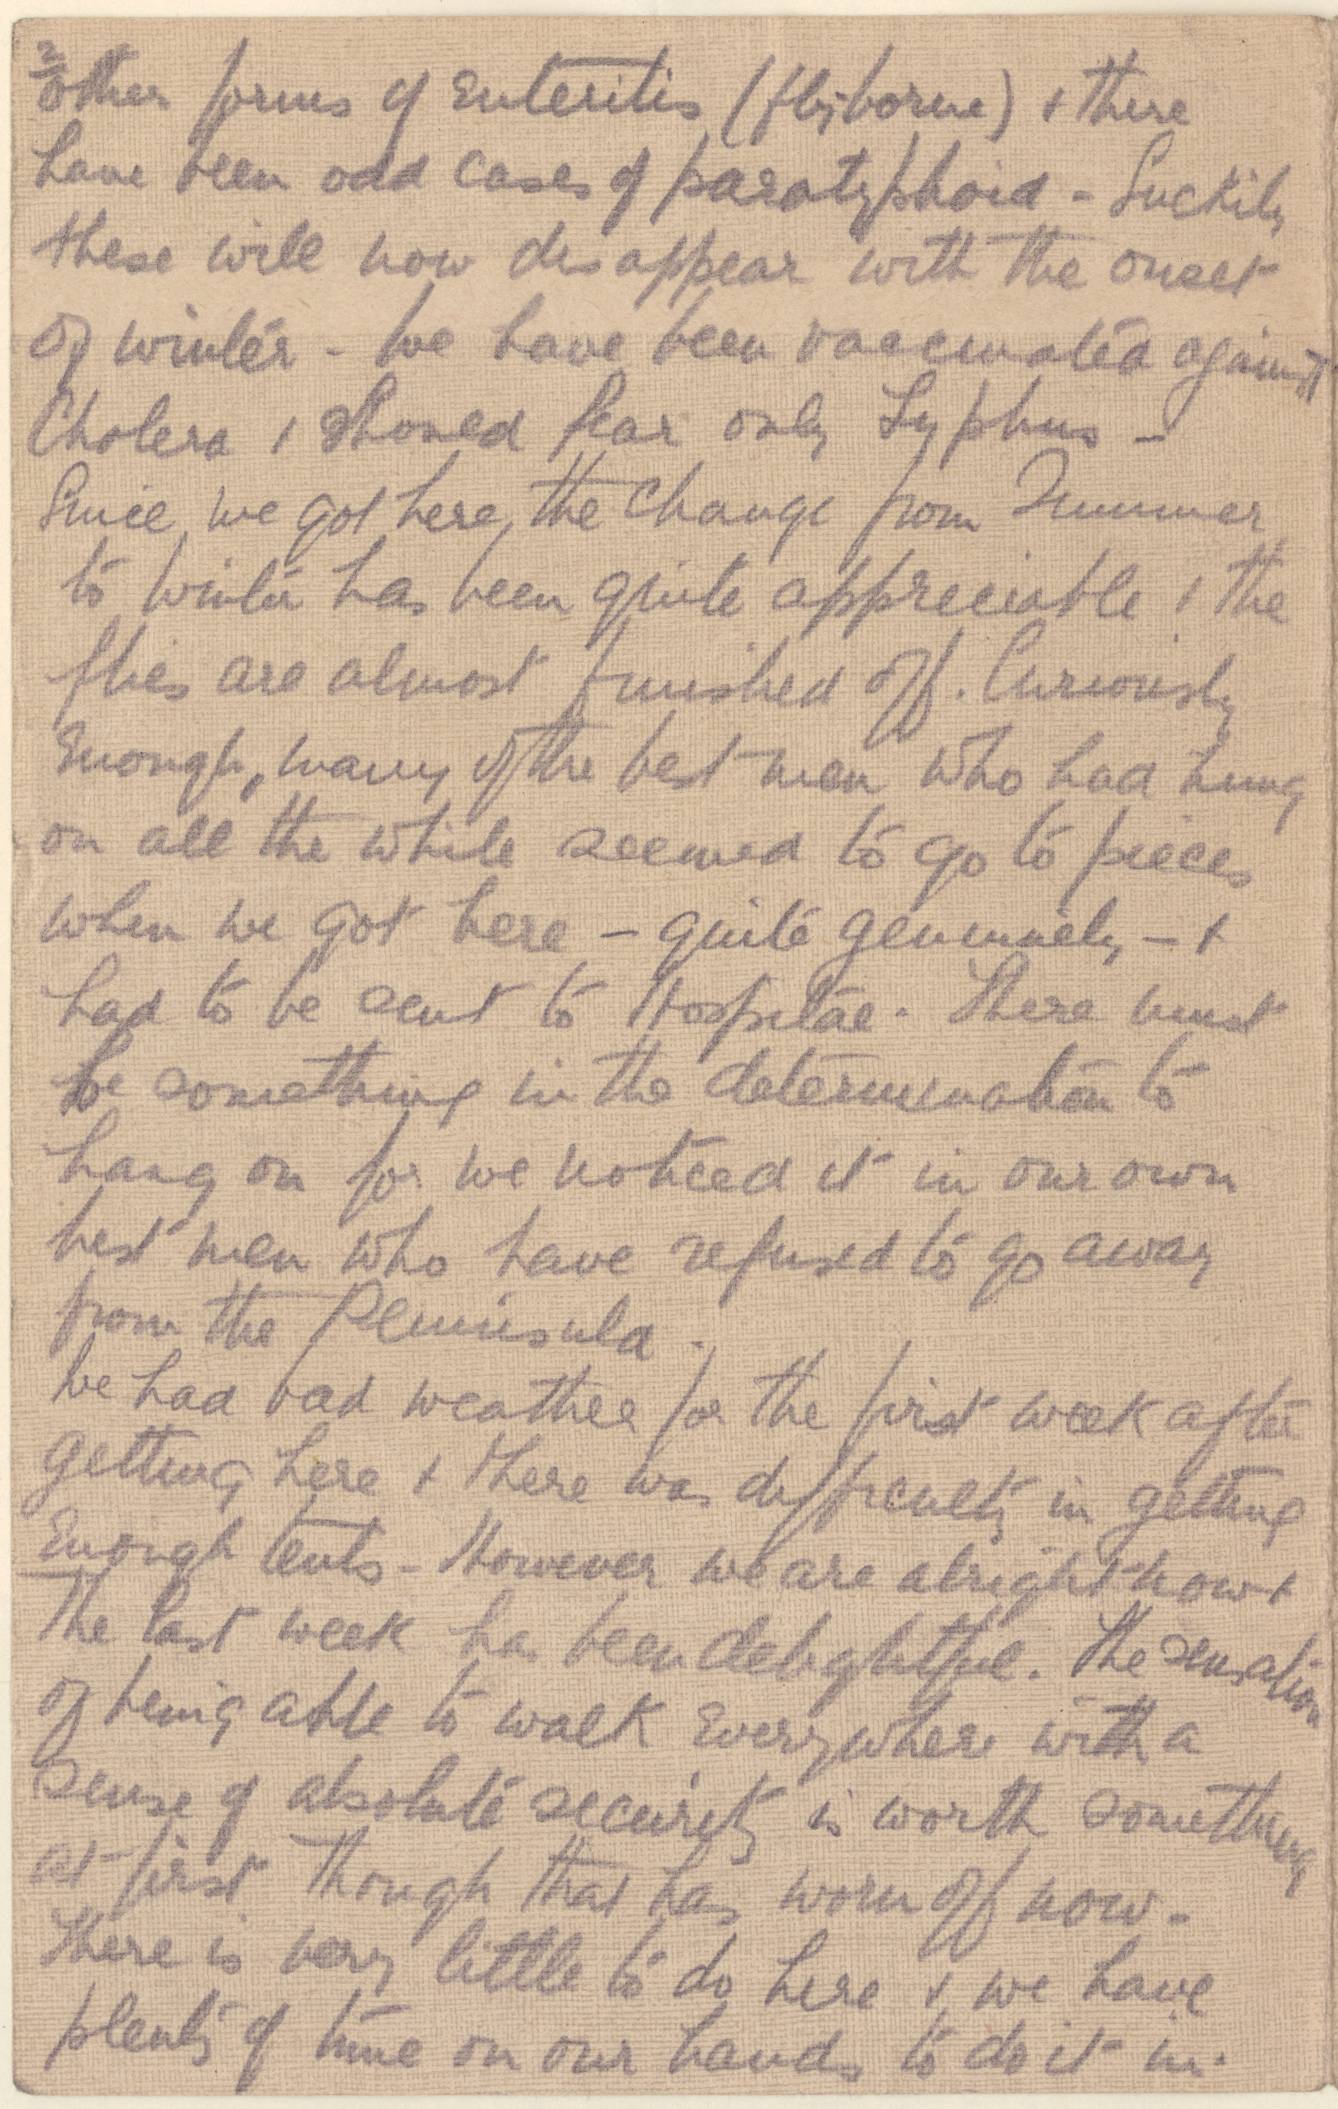 2/
other forms of Enteritis (fly, borne) & there
have been odd cases of paratyphoid - Luckily
these will now disappear with the onset
of winter - We have been vaccinated against
Cholera & should fear only Typhus -
Since, we got here, the change from Summer
to Winter has been quite appreciable & the
flies are almost finished off. Curiously
Enough, many of the best men who had hung
on all the while seemed to go to pieces
when we got here - quite genuinely - &
had to be sent to Hospital. There must
be something in the determination to
hang on for we noticed it in our own
best men who have refused to go away
from the Peninsula.
We had bad weather for the first week after
getting here & there was difficulty in getting
Enough tents - However we are alright now &
The last week has been delightful. The sensation
of being able to walk Everywhere with a
sense of absolute security is worth something
at first though that has worn off now.
There is very little to do here & we have
plenty of time on our hands to do it in.